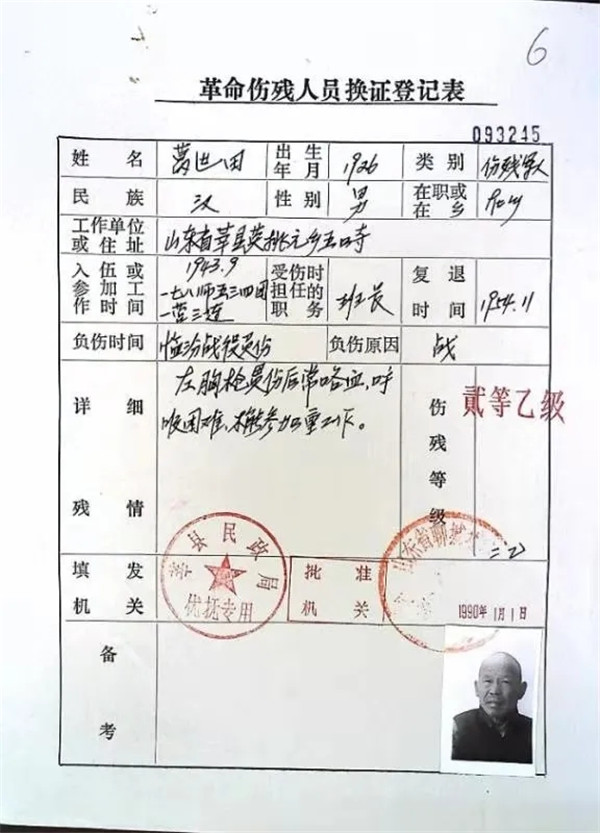 6
革命伤残人员换证登记表
093245
姓名 葛世田 出生年月 1926 类别 伤残军人
民族 汉 性别 男 在职或在乡
工作单位或住址 山东省莘县
入伍或参加工作时间 1943.9 一七八师五三四团一营三连 受伤时担任的职务 班长 复退时间 1954.11
负伤时间 临汾战役负伤 负伤原因 战
详细残情 左胸枪员伤后常咯血,呼吸困难,不能参加重工作。 伤残等级 贰等乙级
二乙
填发机关 莘县民政局 优抚专用 批准机关 山东省聊城 1990年1月1日
备考